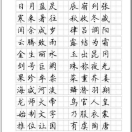 日月盈昃 辰宿列张
寒来暑往 秋收冬藏
闰余成岁 律吕调阳
云腾致雨 露结为霜
金生丽水 玉出昆冈
剑号巨阙 珠称夜光
果珍李柰 菜重芥姜
海咸河淡 鳞潜羽翔
龙师火帝 鸟官人皇
始制文字 乃服衣裳
推位让国 有虞陶唐